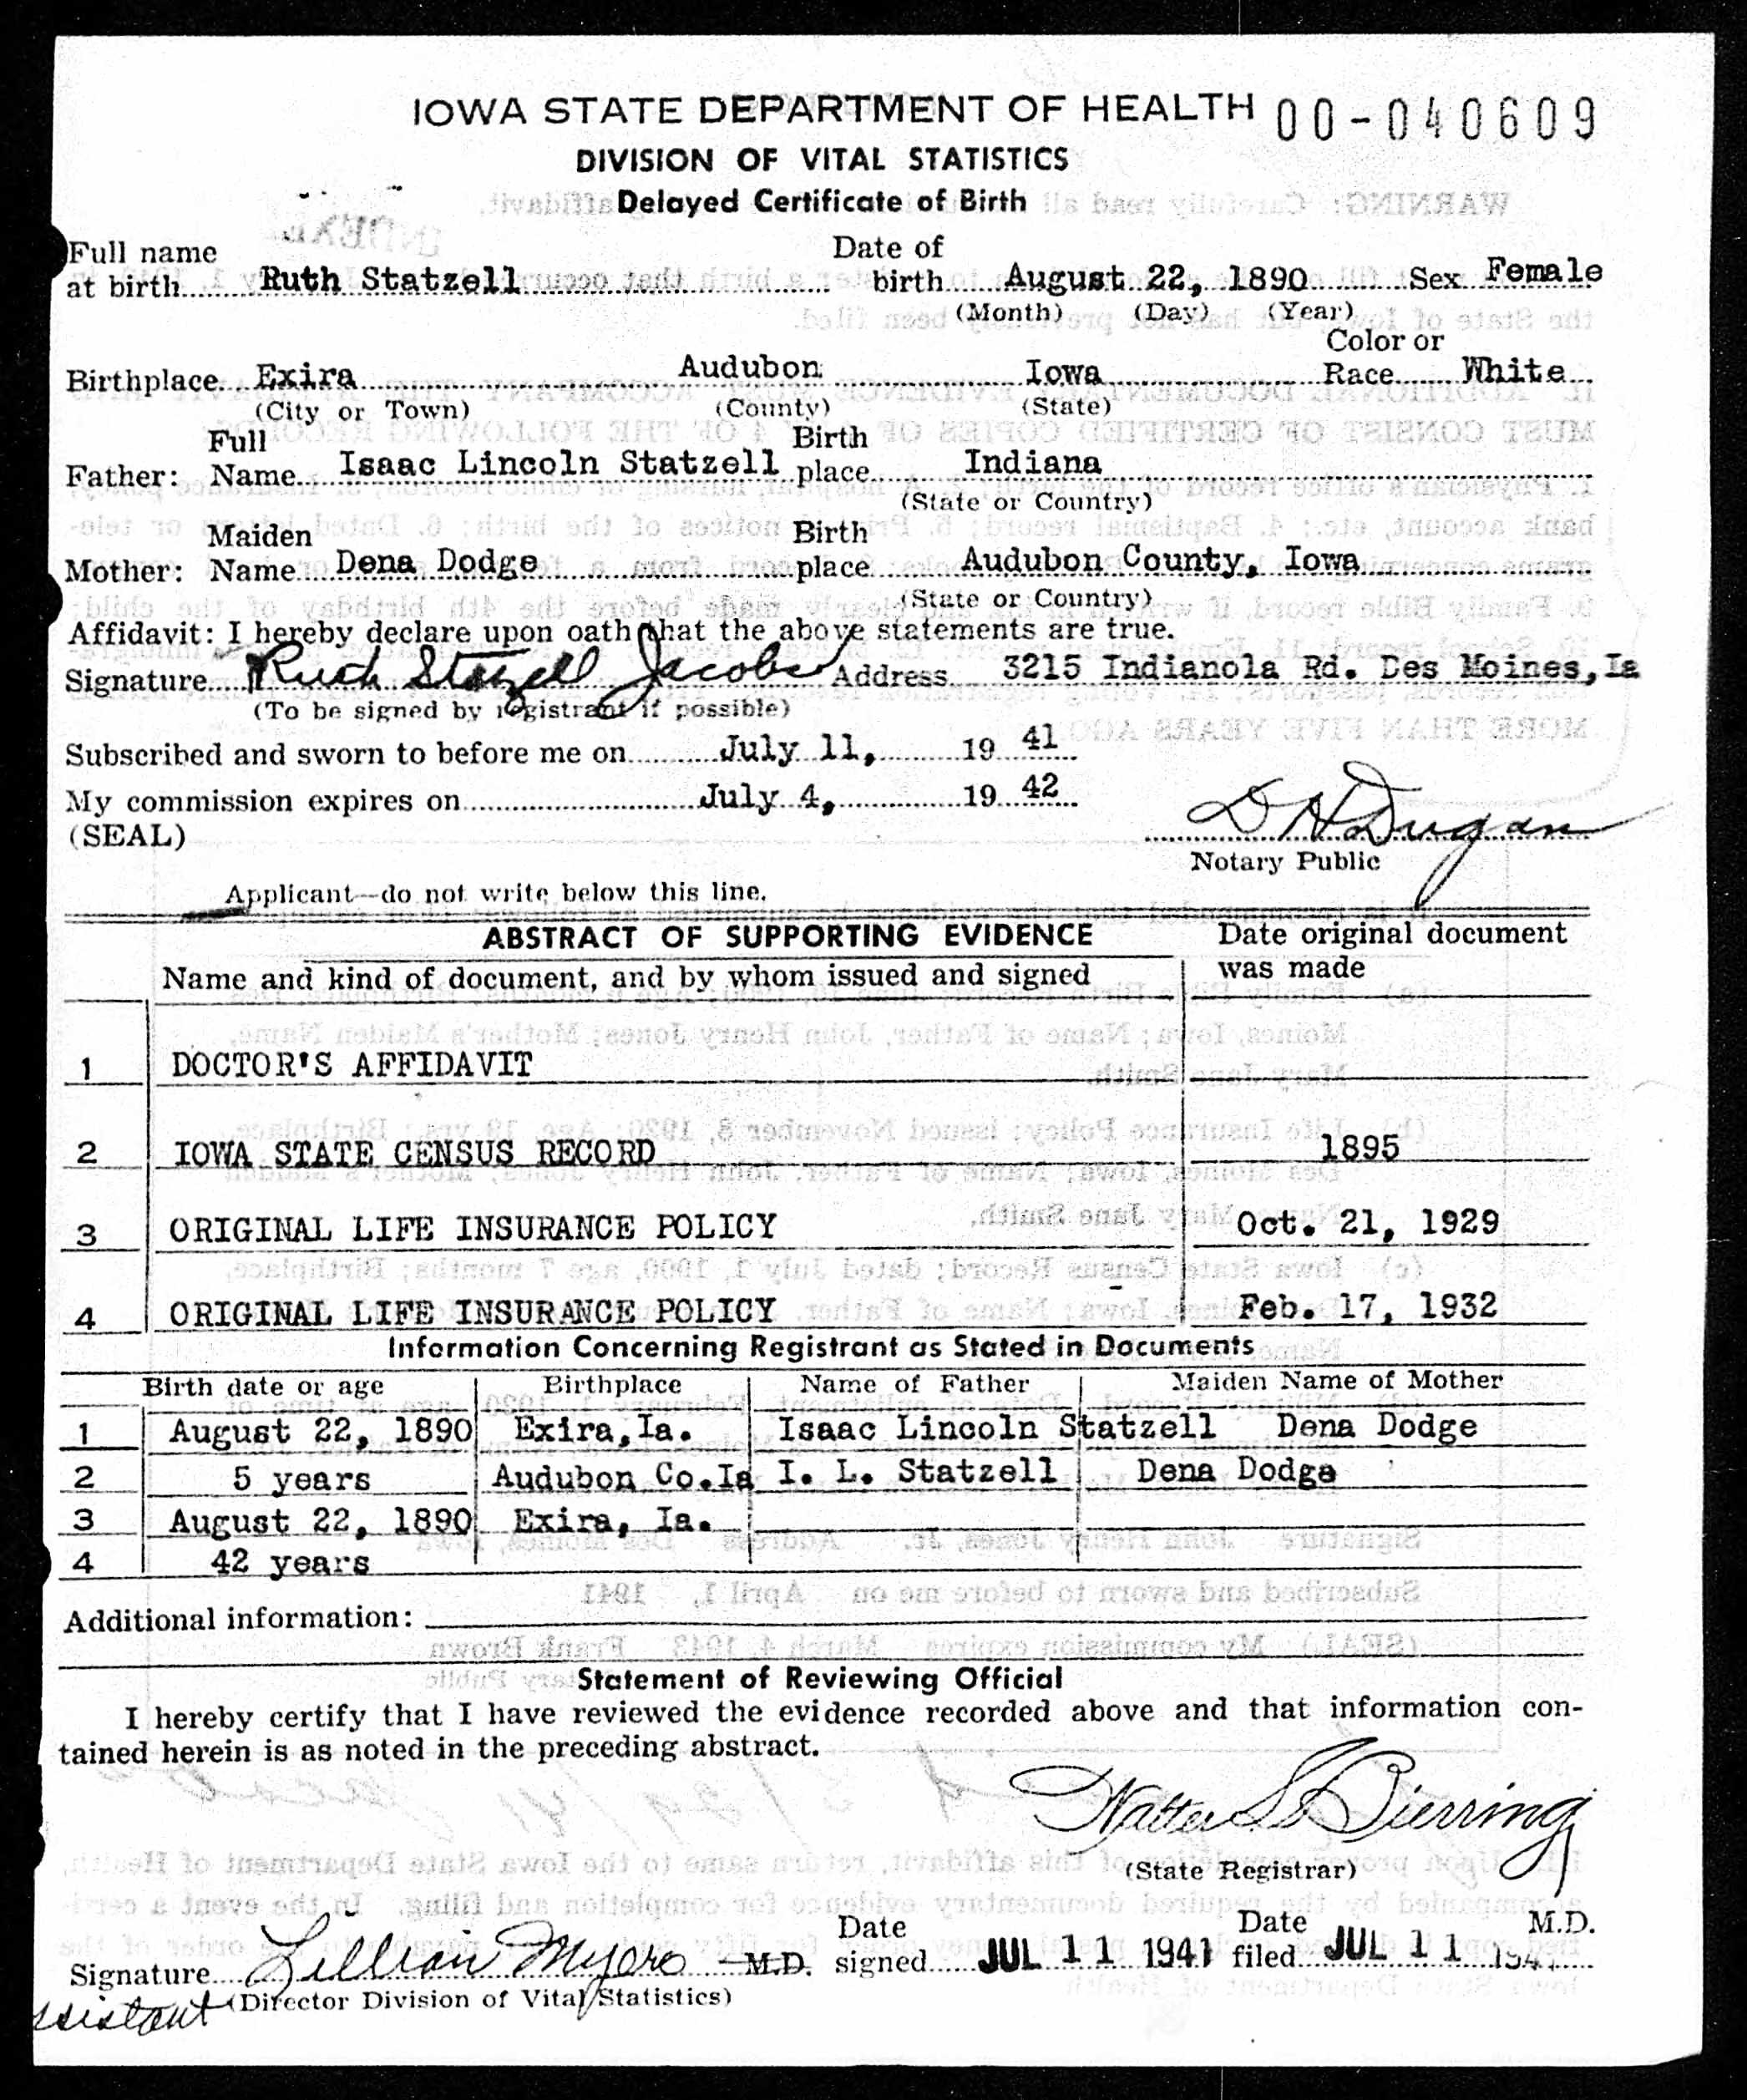 IOWA STATE DEPARTMENT OF HEALTH 00-040609
DIVISION OF VITAL STATISTICS
Delayed Certificate of Birth
Full name at birth Ruth Statzell Date of birth August 22, 1890 Sex Female
(Month) (Day) (Year)
Birthplace Exira Audubon Iowa Color or Race White
(City or Town) (County) (State)
Father: Full Name Isaac Lincoln Statzell Birth place Indiana
(State or Country)
Mother: Maiden Name Dena Dodge Birth place Audubon County, Iowa
(State or Country)
Affidavit: I hereby declare upon oath that the above statements are true.
Signature Ruth Statzell Jacobs Address 3215 Indianola Rd. Des Moines, Ia
(To be signed by registrant if possible)
Subscribed and sworn to before me on July 11, 19 41
My commission expires on July 4, 19 42
(SEAL) D H Dugan
Notary Public
Applicant—do not write below this line.
ABSTRACT OF SUPPORTING EVIDENCE Date original document
Name and kind of document, and by whom issued and signed was made
1 DOCTOR'S AFFIDAVIT
2 IOWA STATE CENSUS RECORD 1895
3 ORIGINAL LIFE INSURANCE POLICY Oct. 21, 1929
4 ORIGINAL LIFE INSURANCE POLICY Feb. 17, 1932
Information Concerning Registrant as Stated in Documents
Birth date or age Birthplace Name of Father Maiden Name of Mother
1 August 22, 1890 Exira, Ia. Isaac Lincoln Statzell Dena Dodge
2 5 years Audubon Co.Ia I. L. Statzell Dena Dodge
3 August 22, 1890 Exira, Ia.
4 42 years
Additional information:
Statement of Reviewing Official
I hereby certify that I have reviewed the evidence recorded above and that information con-
tained herein is as noted in the preceding abstract.
Walter L Bierring
(State Registrar)
M.D.
Signature Lillian Myers M.D. Date signed JUL 11 1941 Date filed JUL 11 194
(Director Division of Vital Statistics)
ssistant